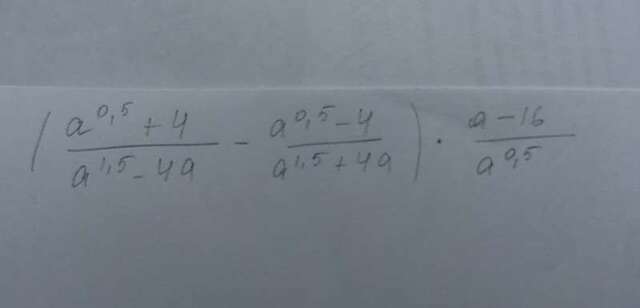 ( (a^0,5 + 4)/(a^1,5 - 4a) - (a^0,5 - 4)/(a^1,5 + 4a) ) · (a - 16)/(a^0,5)